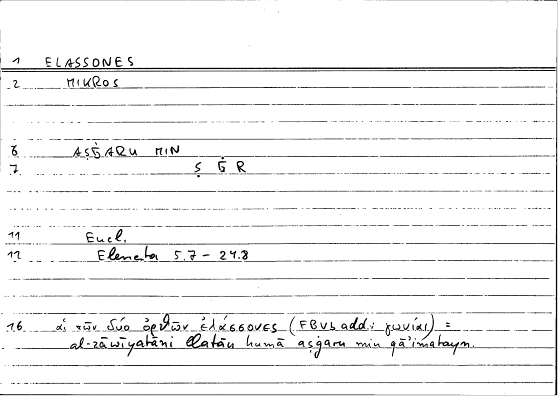 1 ELASSONES
2 MIKROS
6 AṢĠARU MIN
7 Ṣ Ġ R
11 Eucl.
12 Elementa 5.7 – 24.8
16 αἱ τῶν δύο ὀρθῶν ἐλάσσονες (FBVb add.: γωνίαι) =
al-zāwiyatāni llatāni humā aṣġaru min qā'imatayn.